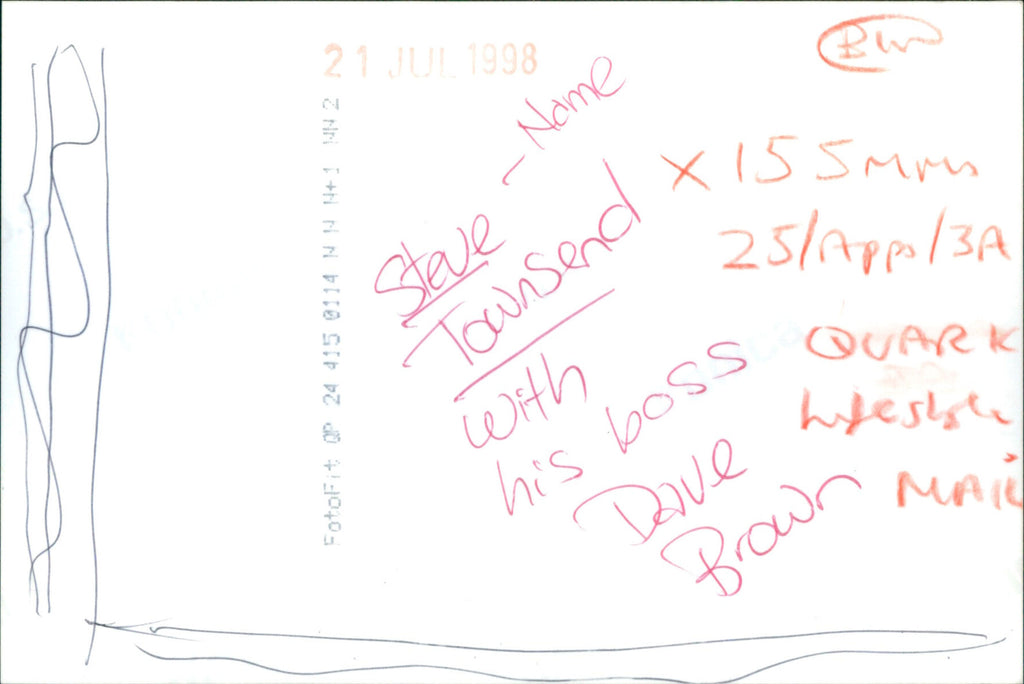 BW
21 JUL 1998
FotoFit QP 24 415 0114 N N N+1 NN 2
Steve - Name
Townsend
with
his boss
Dave
Brown
X 155mms
25/Apps/3A
QUARK
Lifestyle
MAIL